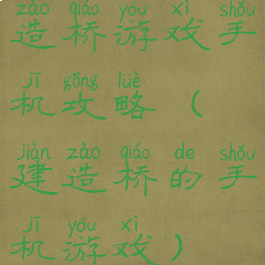 zào qiáo yóu xì shǒu
造桥游戏手
jī gōng lüè
机攻略（
jiàn zào qiáo de shǒu
建造桥的手
jī yóu xì
机游戏）